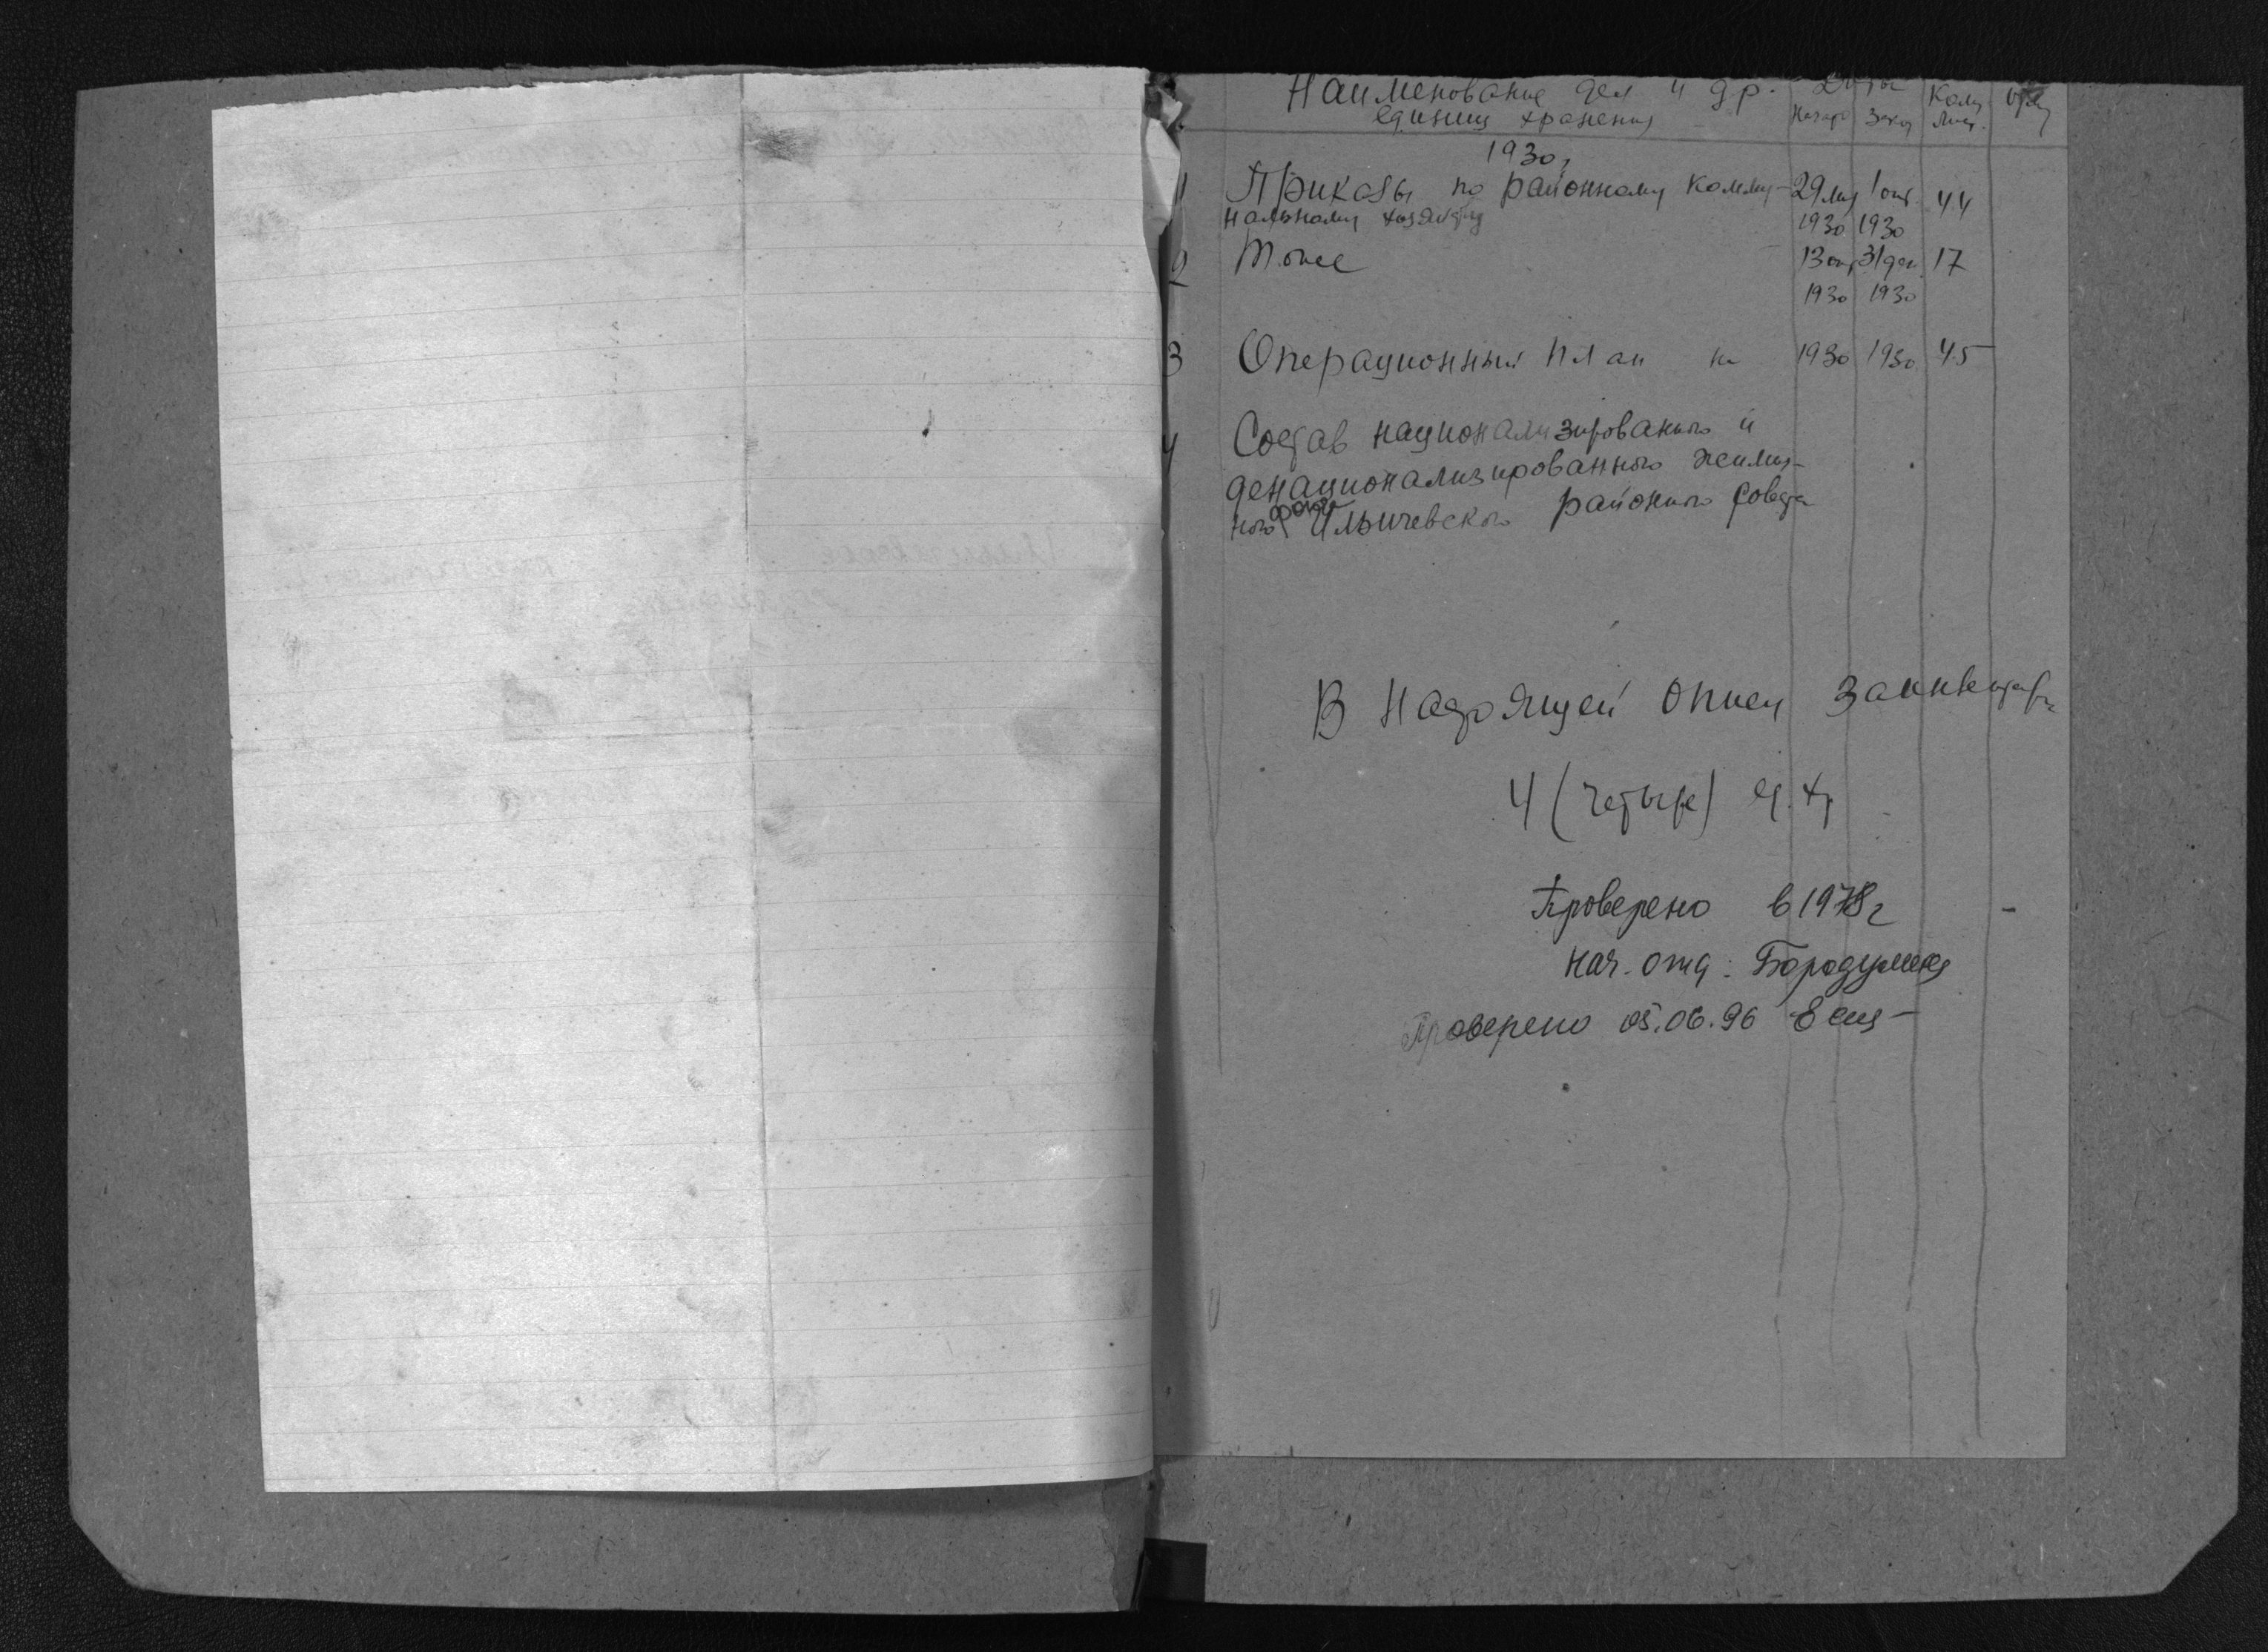 Наименование дел и др. Даты Колич.
единиц хранения Начало Закон. Лист.
1930г
1 Приказы по районному комму- 29 1 окт. 44
нальному хозяйству 1930 1930
2 Тоже 13 окт 31 дек. 17
1930 1930
3 Операционный план на 1930 1930 45
4 Состав национализированного и
денационализированного жилищ-
ного фонда Ильичевского районного Совета
В настоящей описи заинвентар.
4 (четыре) ед. хр
Проверено в 1978 г
нач. отд: Бородулина
Проверено 05.06.96